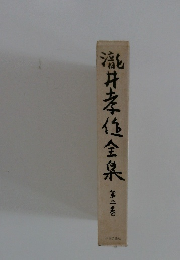 瀧井孝作全集
第二巻